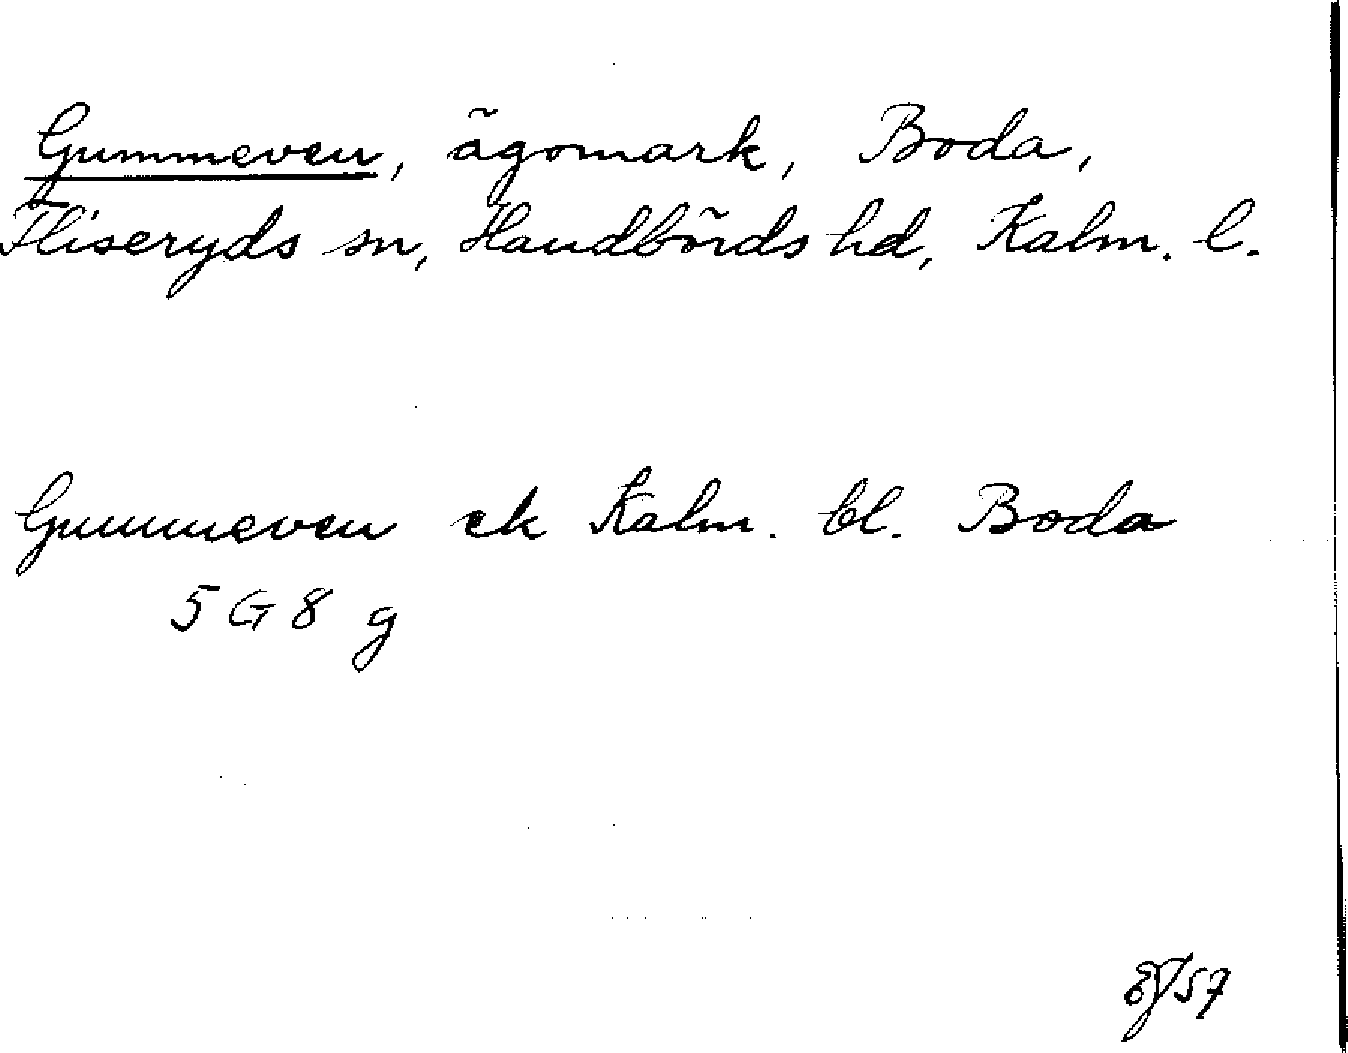 Gummeven, ägomark, Boda,
Fliseryds sn, Handbörds hd, Kalm. l.
Gummeven ek Kalm. bl. Boda
5 G 8 g
57